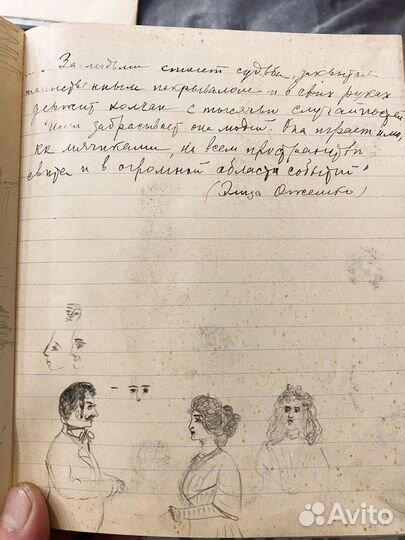 „За людьми стоит судьба, закрытая
таинственным покрывалом и в своих руках
держит колчан с тысячью случайностей
Ими забрасывает она людей. Она играет ими,
как мячиками, на всем пространстве
света и в огромной области событий“
(Элиза Ожешко)
Avito